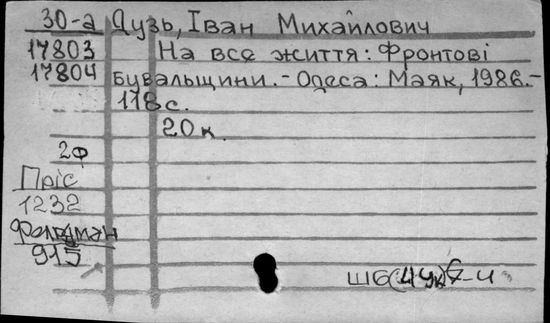 30-а Дузь, Іван Михайлович
17803 На все життя: Фронтові
17804 Бувальщини.- Одеса: Маяк, 1986.-
118с.
20к.
2ф
Пріс
1232
Фельдман
915
ШБ(4Ук)6-4